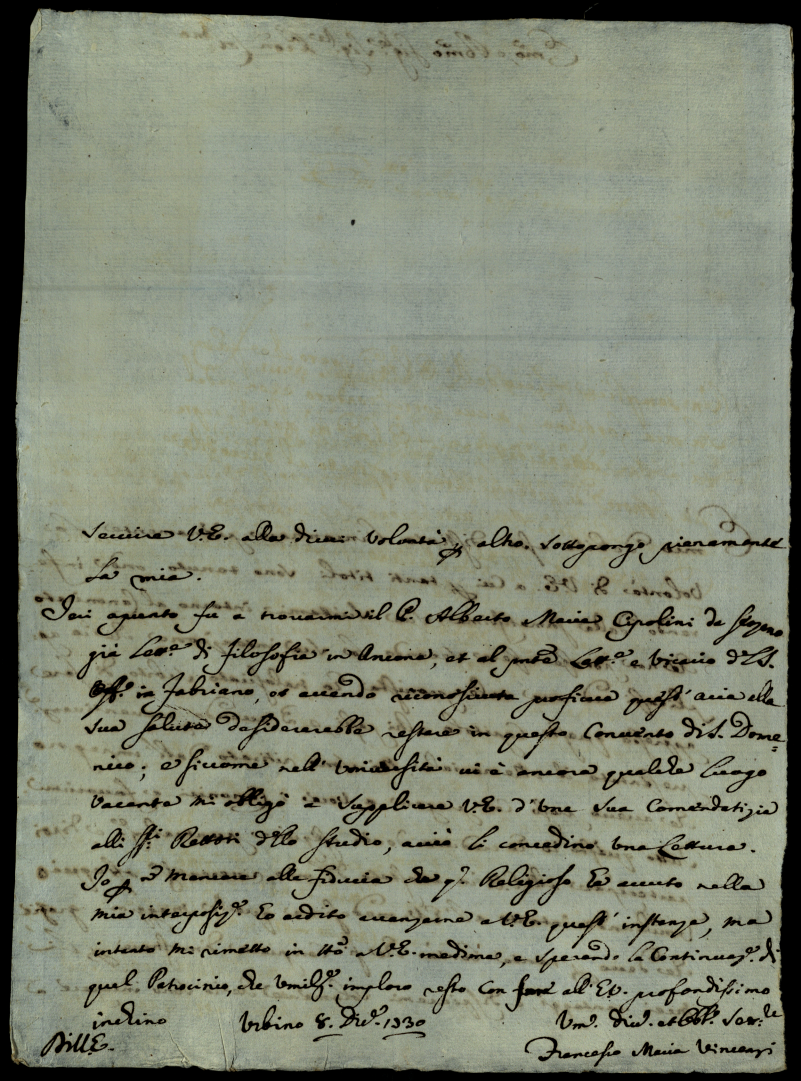 servire V.E. alla di cui volontà p altro sottopongo pienamente
la mia.
Ieri apunto fu a trovarmi il P. Alberto Maria Cipolini da
già Lett.e di Filosofia in Ancona, et al pnte Lett.e e Vicario del S.
Off.o in Fabriano, et avendo riconosciuta proficua quest' aria alla
sua salute desidererebbe restare in questo Convento di S. Dome=
nico; e siccome nell' Università vi è ancora qualche luogo
vacante mi obligò a supplicare V.E. d' una sua Comendatizia
alli SS.ri Rettori dello studio, acciò li concedino una Lettura.
Io p n mancare alla fiducia che q.o Religioso hà avuto nella
mia interposiz.e hò ardito avanzarne a V.E. quest' instanza, ma
intanto mi rimetto in tto a V.E. medma, e sperando la Continuaz.e di
quel Patrocinio, che umilm.e imploro resto con fare all' E.V. profondissimo
inchino Urbino 8. Dic.e 1730 Um.o Div.o et Obb.o Ser.re
Francesco Maria Vincenzi